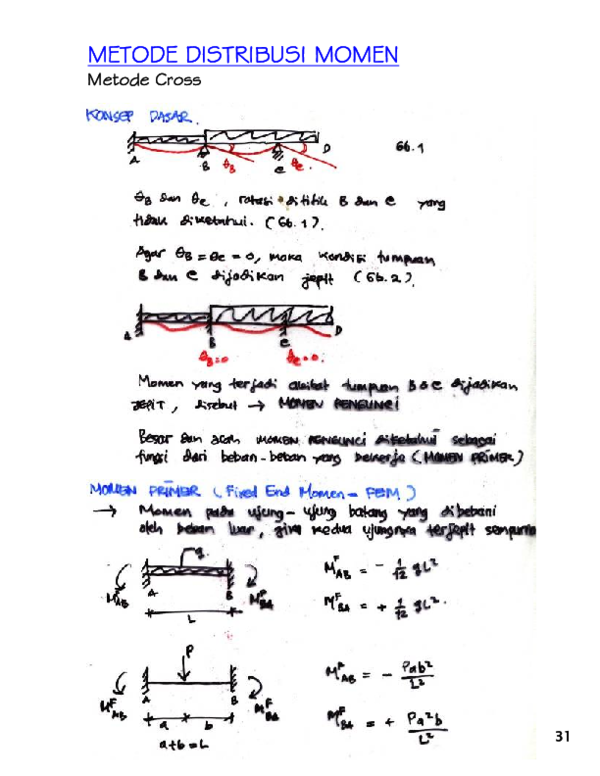 METODE DISTRIBUSI MOMEN
Metode Cross
KONSEP DASAR.
A B θB C θC D Gb.1
θB dan θC, rotasi di titik B dan C yang
tidak diketahui. (Gb.1).
Agar θB = θC = 0, maka kondisi tumpuan
B dan C dijadikan jepit (Gb.2).
A B C D
θB=0 θC=0.
Momen yang terjadi akibat tumpuan B & C dijadikan
JEPIT, disebut → MOMEN PENGUNCI
Besar dan arah MOMEN PENGUNCI diketahui sebagai
fungsi dari beban-beban yang bekerja (MOMEN PRIMER)
MOMEN PRIMER (Fixed End Momen = FEM)
→ Momen pada ujung-ujung batang yang dibebani
oleh beban luar, jika kedua ujungnya terjepit sempurna
q
M^F_AB A B M^F_BA
L
M^F_AB = - 1/12 qL²
M^F_BA = + 1/12 qL².
P
M^F_AB A B M^F_BA
a b
a+b=L
M^F_AB = - Pab²/L²
M^F_BA = + Pa²b/L²
31